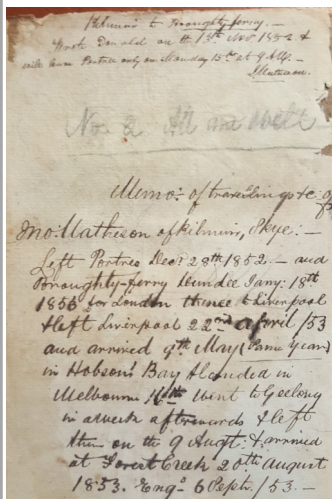 Kilmuir to Broughty ferry. —
Wrote Donald on the 13th Nov 1852 &
will leave Portree only on Monday 15th at 9 AM. —
J Matheson.
No. 2 All and Well
Memo: of travelling &c of
Jno. Matheson of Kilmuir, Skye: —
Left Portree Decr 28th 1852 — and
Broughty-ferry Dundee Jany: 18th
1853 for London thence to Liverpool
& left Liverpool 22nd April /53
and arrived 9th May (Same Year)
in Hobson's Bay & landed in
Melbourne 16th Went to Geelong
in a week afterwards & left
then on the 9 Augt: & arrived
at Forest Creek 20th August
1853. Engd 6 Septr. /53. —